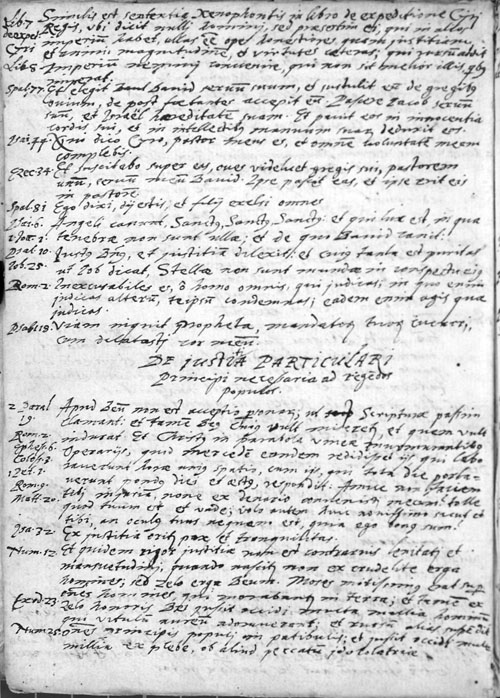 Lib. 7 Similis est sententia Xenophontis in libro de expeditione Cyri
de exped. Regis, ubi dicit nulli homini, sed præsertim ei, qui in alios
Cyri imperium habet, ullas eē opes honestiores, quam justitiam
et animi magnitudinem et virtutes ceteras; qui
Lib. 8 Imperium nemini convenire, qui non sit melior illis qbus
imperat.
Psal. 77. Et elegit David servum suum, et sustulit eū de gregibus
ovium, de post fœtantes accepit eū. Pascere Jacob servum
suū, et Israël hæreditatē suam. Et pavit eos in innocentia
cordis sui, et in intellectibus manuum suarum deduxit eos.
Isai. 44. Qui dico Cyro, pastor meus es, et omnē voluntatē meam
complebis.
Ezec. 34. Et suscitabo super eas, oves videlicet gregis sui, pastorem
unū, servum meū David. Ipse pascet eas, et ipse erit eis
in pastorē.
Psal. 81 Ego dixi, dij estis, et filij excelsi omnes
Isai. 6. Angeli canunt, Sanctus, Sanctus, Sanctus: et qui lux est, in qua
1 Joa. 1. tenebræ non sunt ullæ; et de quo David canit:
Psal. 10. Justus Dn̄s, et justitiam dilexit: et cuius tanta et puritas
Job. 25. ut Job dicat, Stellæ non sunt mundæ in conspectu ejus
Rom. 2. Inexcusabiles es, ô homo omnis, qui judicas; in quo enim
judicas alterū, teipsum condemnas; eadem enim agis quæ
judicas.
Psal. 118. Viam inquit Propheta, mandatorum tuorum cucurri,
cum dilatasti cor meum.
DE JUSTITIA PARTICULARI
Principi necessaria ad regendos
Populos.
2 Paral. Apud Deū non est acceptio personarum, ut Scripturæ passim
19. clamant: et tamen Deus cuius vult miseretur, et quem vult
Rom. 2. indurat. Et Christus in parabola vineæ murmurantibus
Ephes. 6. Operarijs, quod mercedē eandem reddidisset ijs qui labo
Coloss. 3. raverunt horæ unius spatio, cum ijs, qui tota die porta-
1 Pet. 1. verunt pondus diei et æstus, respondit. Amice non faciem
Rom. 9. tibi injuriam, nonne ex denario convenisti mecum? tolle
Matt. 20. quod tuum est et vade; volo autem huic novissimo sicut et
tibi, an oculus tuus nequam est, quia ego bonus sum?
Isa. 32. Ex justitia orit pax et tranquilitas.
Num. 12. Et quidem rigor justitiæ non est contrarius lenitati et
mansuetudini, quando nascitur non ex crudelitate erga
homines, sed zelo erga Deum. Moses mitissimus erat super
Exod. 23. omnes homines, qui morabantur in terra; et tamen ex
zelo honoris Dei jussit occidi multa millia hominum
qui vitulum aureū adoraverant; et rursum alias suspendit
Num. 25. omnes principes populi in patibulis; et jussit occidi multa
millia ex plebe, ob aliud peccatum idololatriæ.